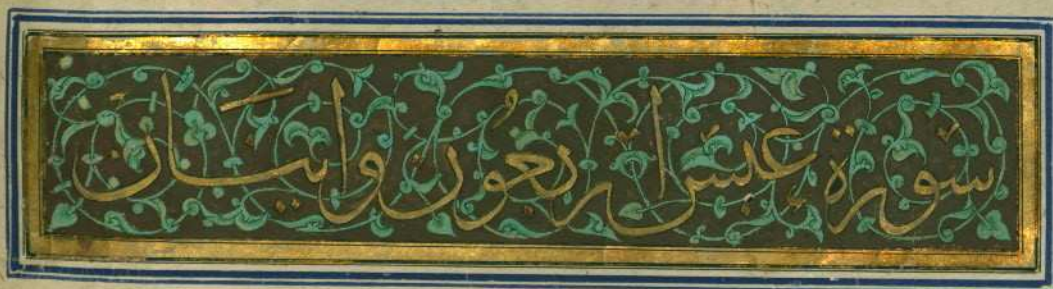 سورة عبس اربعون وايتان